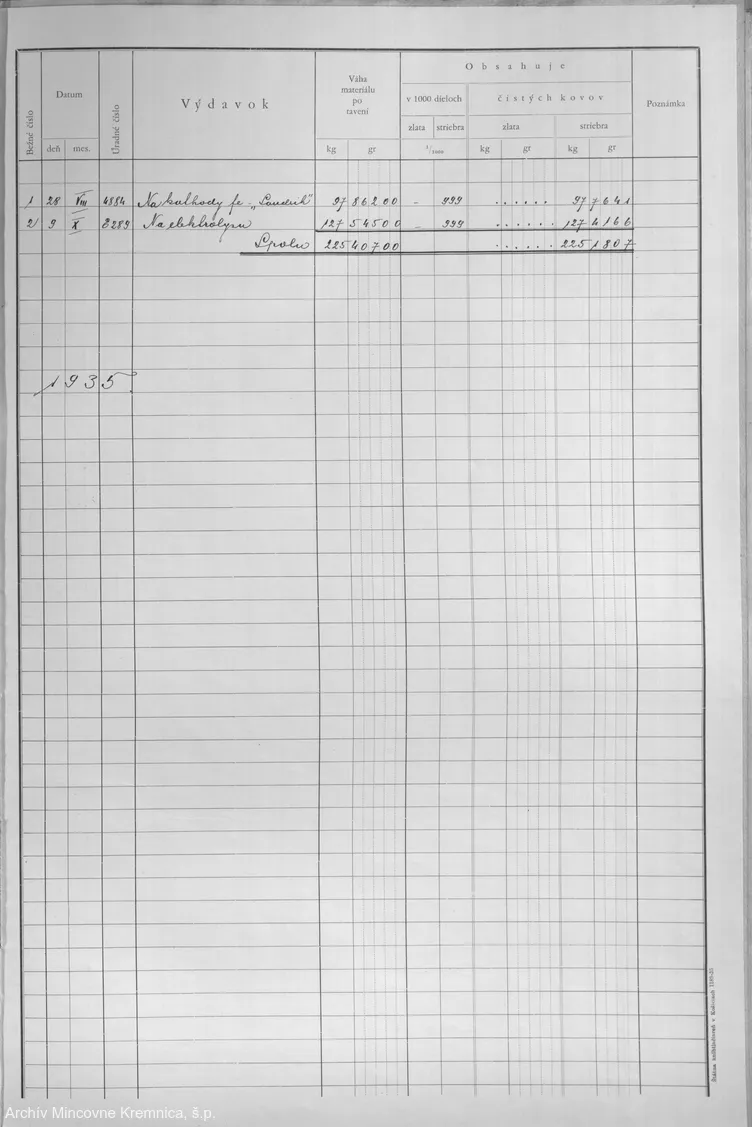 Bežné číslo
Datum
deň
mes.
Úradné číslo
Výdavok
Váha
materiálu
po
tavení
kg gr
Obsahuje
v 1000 dieloch
zlata striebra
¹/₁₀₀₀
čistých kovov
zlata striebra
kg gr kg gr
Poznámka
1 28 VIII 4884 Na kathody fe. „Sandrik" 97 86200 - 999 ...... 97 7641
2 9 X 5289 Na elektrolysu 127 54500 - 999 ...... 127 4166
Spolu 225 40700 ...... 225 1807
1935.
Archív Mincovne Kremnica, š.p.